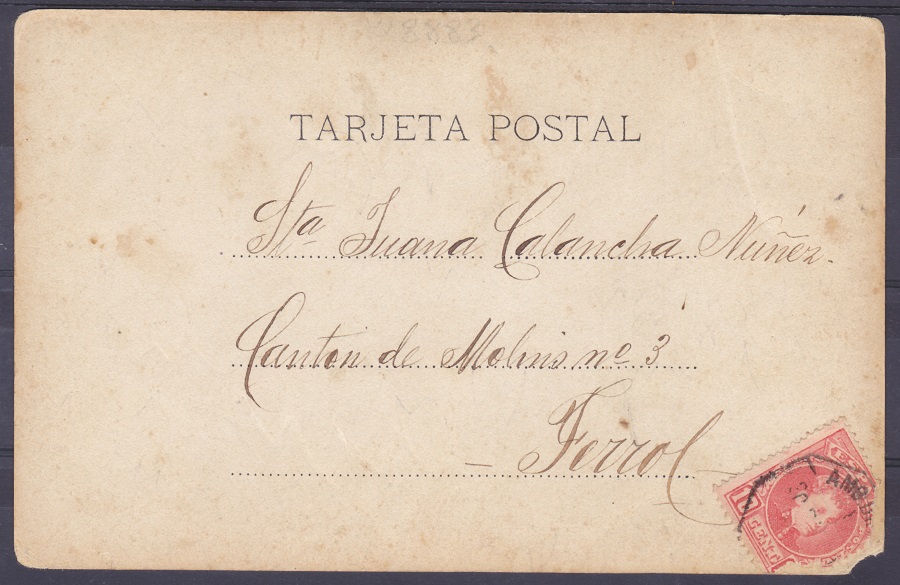 8883
TARJETA POSTAL
Sta Juana Calancha Núñez
Canton de Molins nº 3
Ferrol
AMB